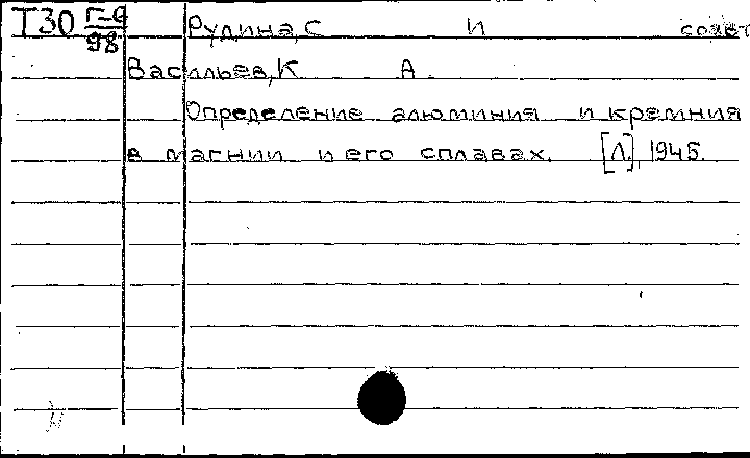 Т30 Г-9 Рудина, С И соавт
98
Васильев, К А.
Определение алюминия и кремния
в магнии и его сплавах. [Л.], 1945.